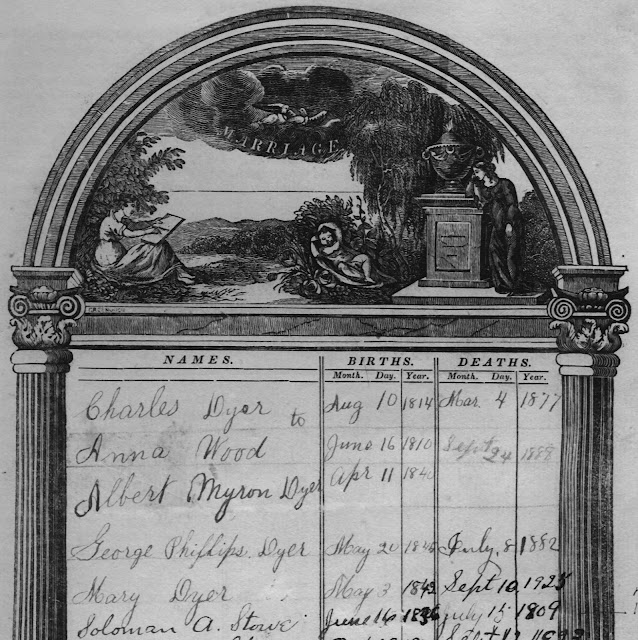 MARRIAGE
NAMES. BIRTHS. DEATHS.
Month. Day. Year. Month. Day. Year.
Charles Dyer to Aug 10 1814 Mar. 4 1877
Anna Wood June 16 1810 Sept 24 1888
Albert Myron Dyer Apr 11 1840
George Phillips Dyer May 20 July, 8 1882
Mary Dyer May 3 1842 Sept 10, 1925
Soloman A. Stowe June 16 1836 July 15 1809